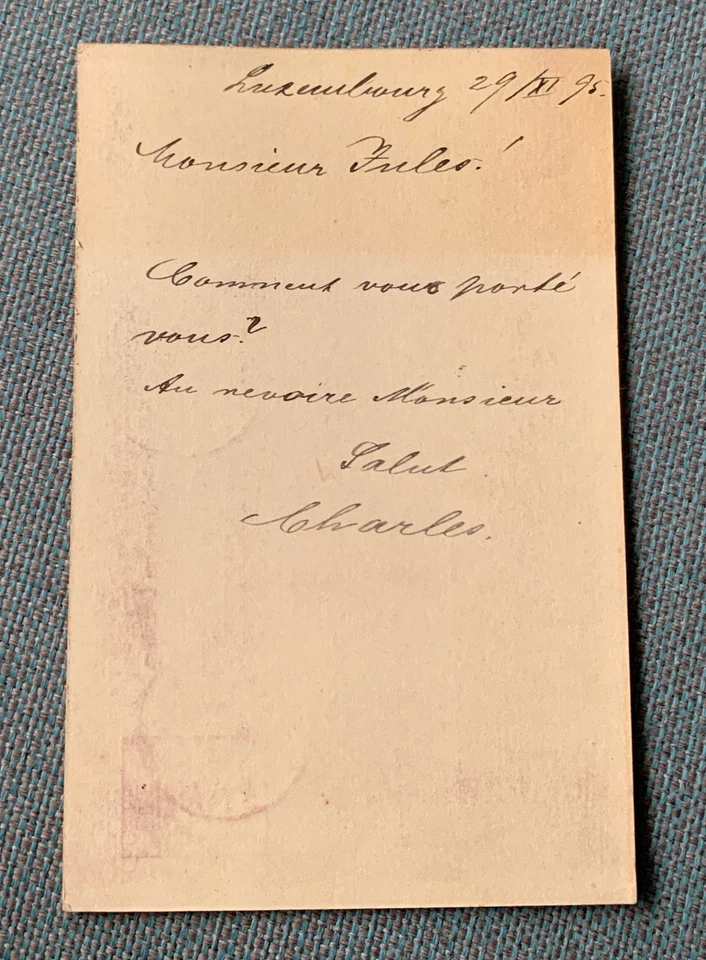 Luxembourg 29/XI 95.
Monsieur Jules!
Comment vous porté
vous?
Au revoire Monsieur
Salut
Charles.